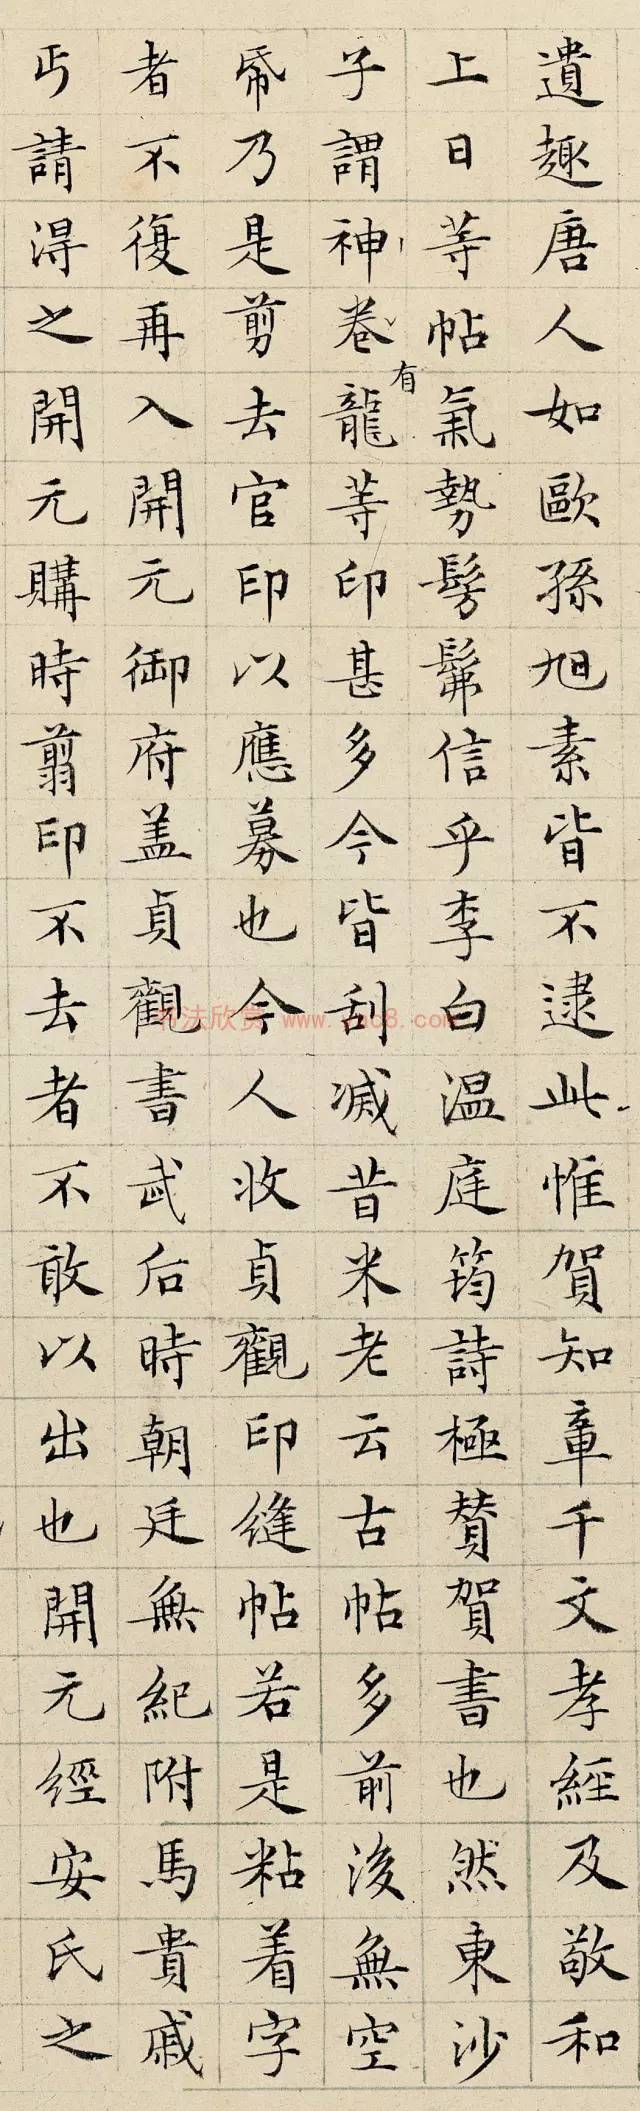 遺趣唐人如歐孫旭素皆不逮此惟賀知章千文孝經及敬和
上日等帖氣勢髣髴信乎李白温庭筠詩極賛賀書也然東沙
子謂神卷有龍等印甚多今皆刮滅昔米老云古帖多前後無空
帋乃是剪去官印以應募也今人收貞觀印縫帖若是粘着字
者不復再入開元御府盖貞觀書武后時朝廷無紀附馬貴戚
丐請得之開元購時翦印不去者不敢以出也開元經安氏之
书法欣赏